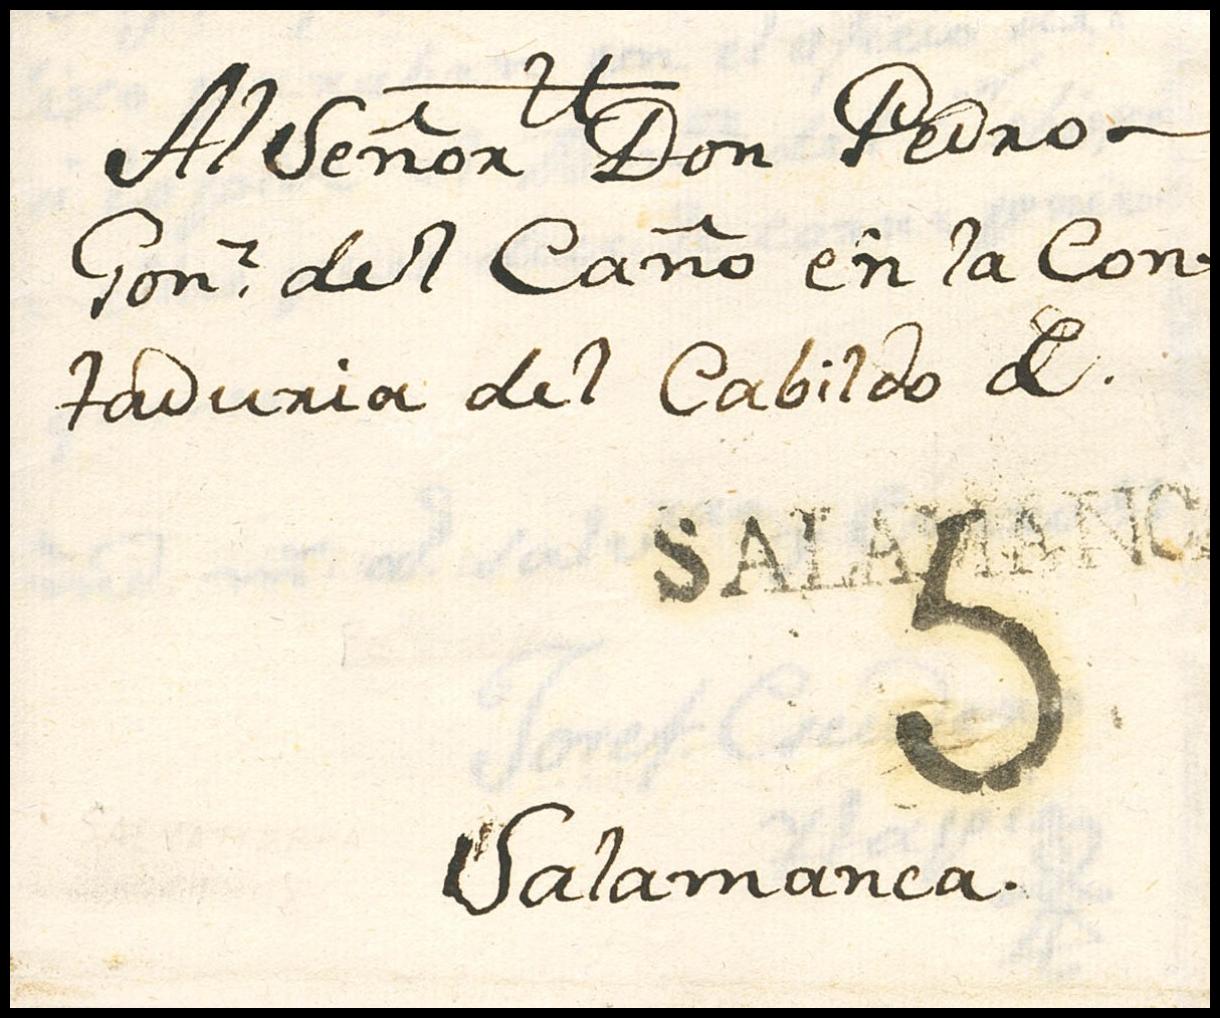 Al Señor Don Pedro
Gonz. del Caño en la Con-
taduria del Cabildo &.
SALAMANC
5
Salamanca.